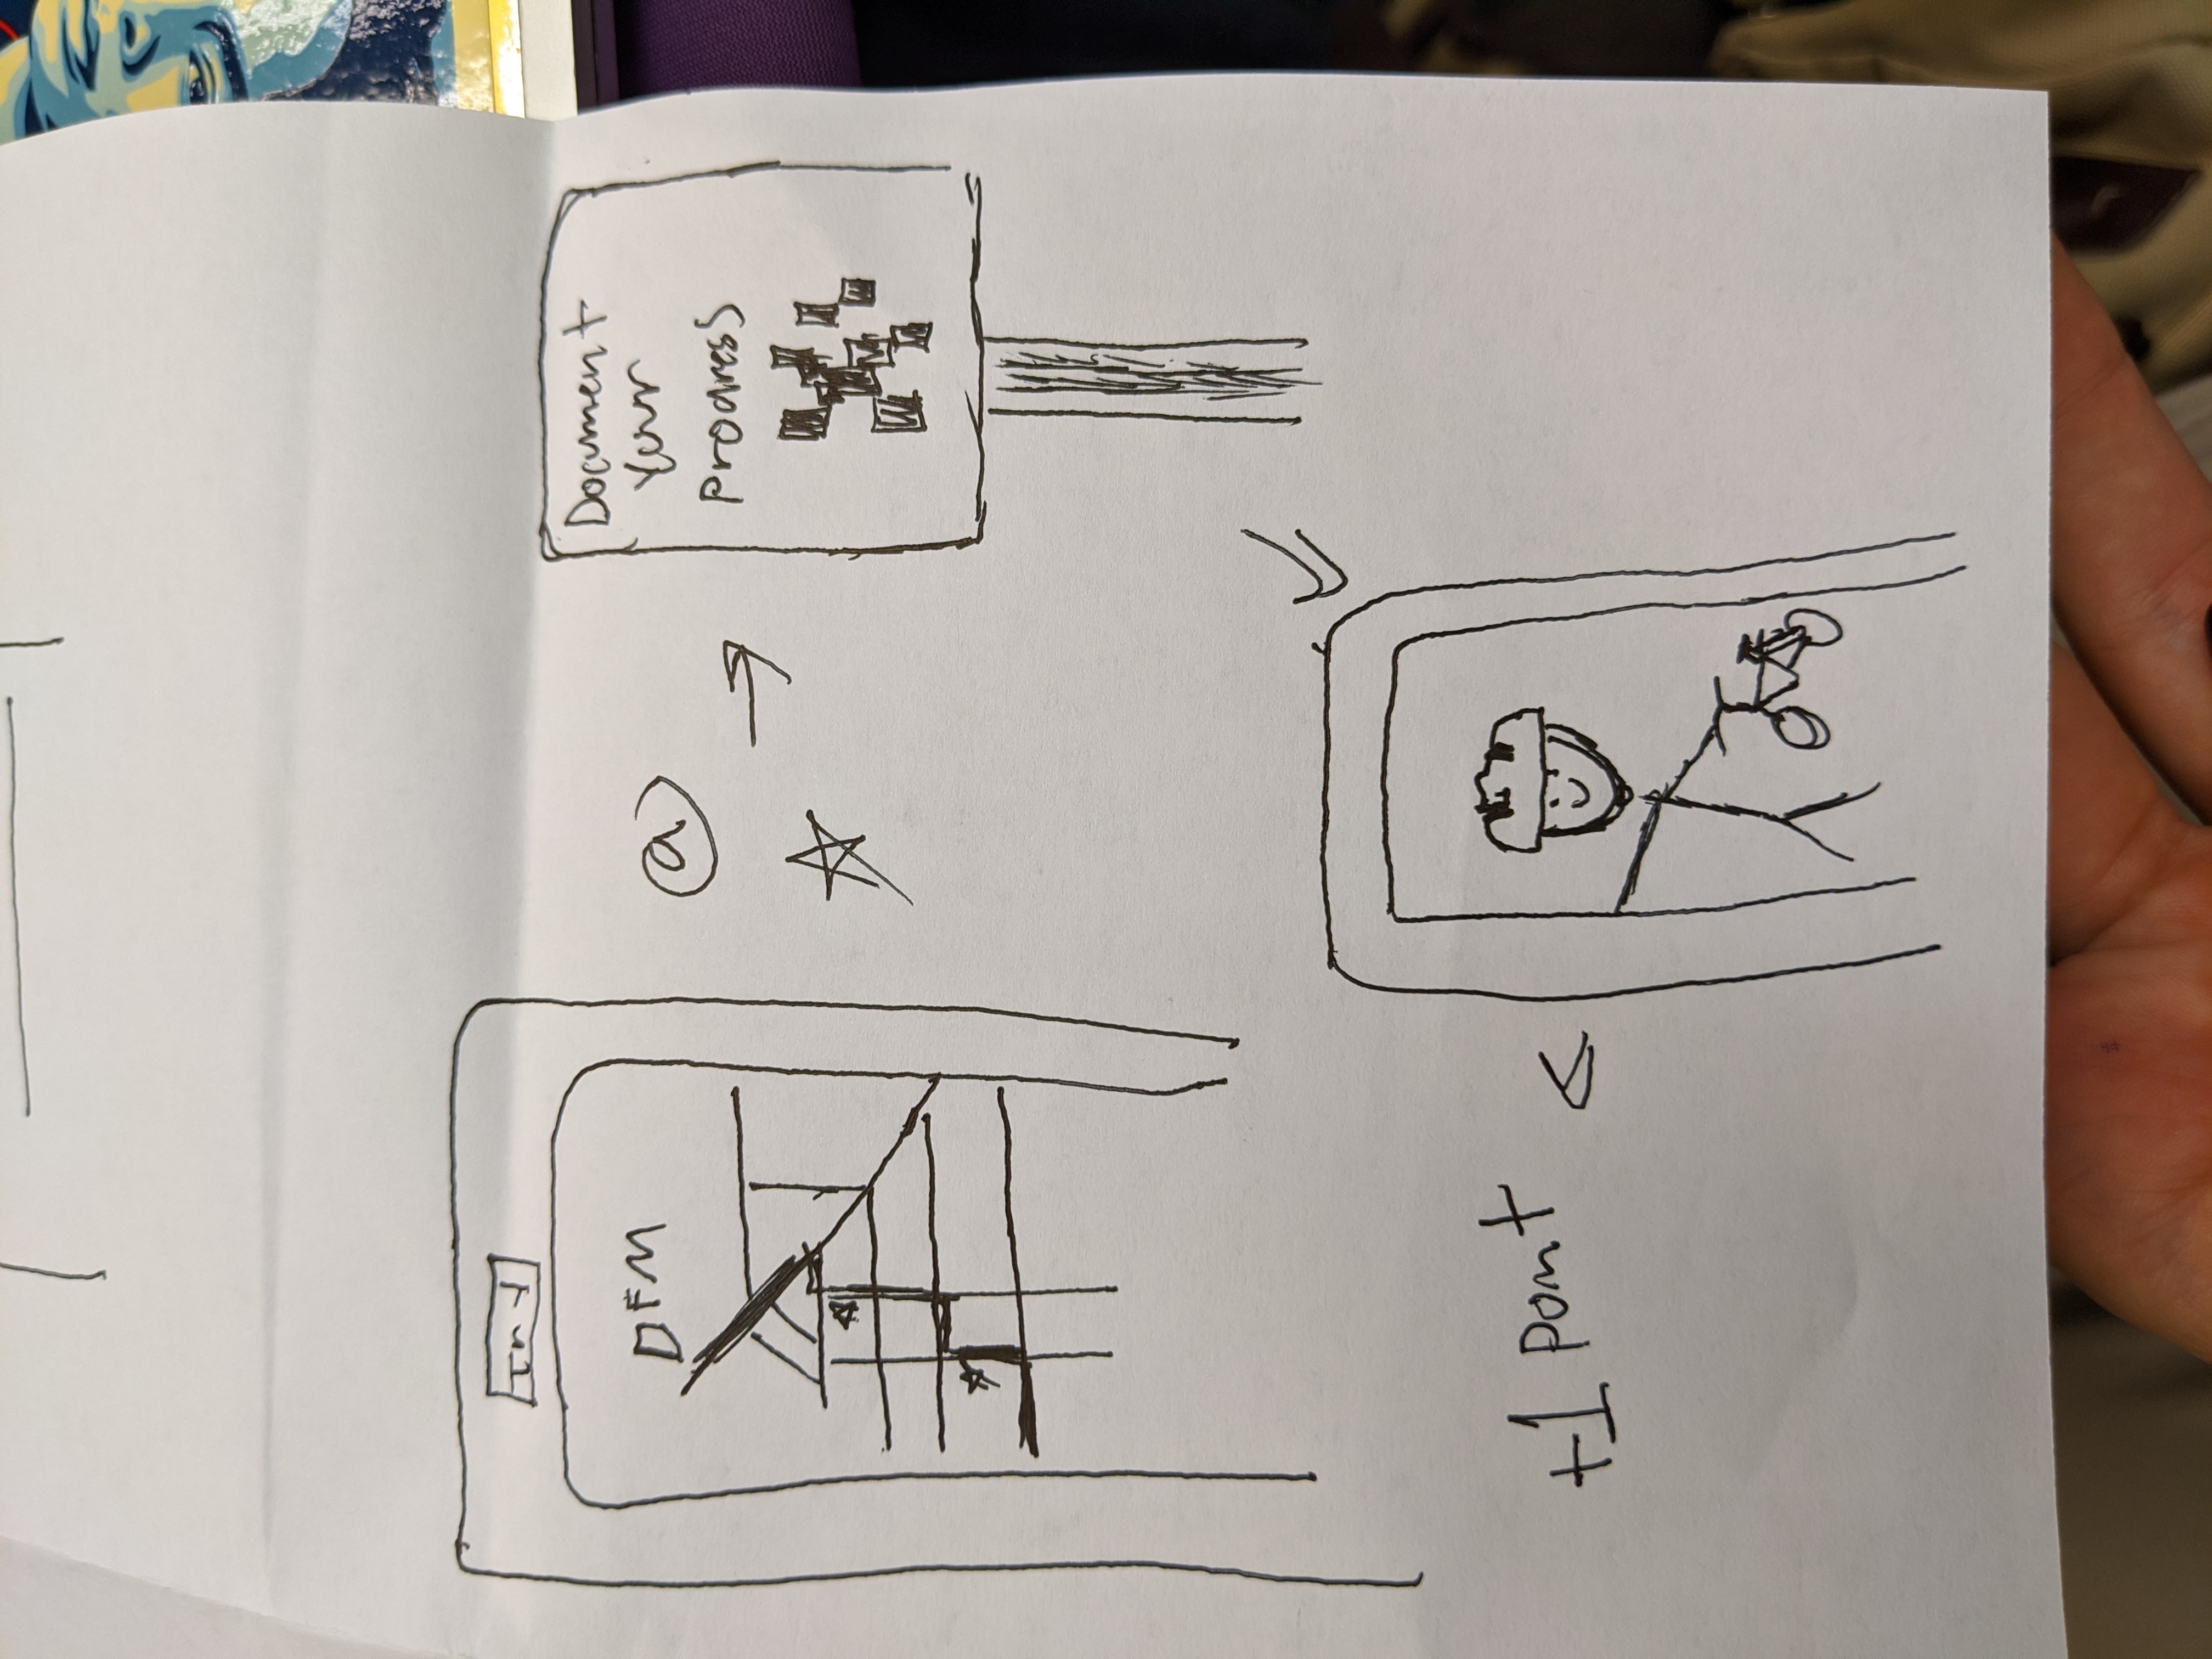 DFM
@
Document
Your
Progress
+1 point